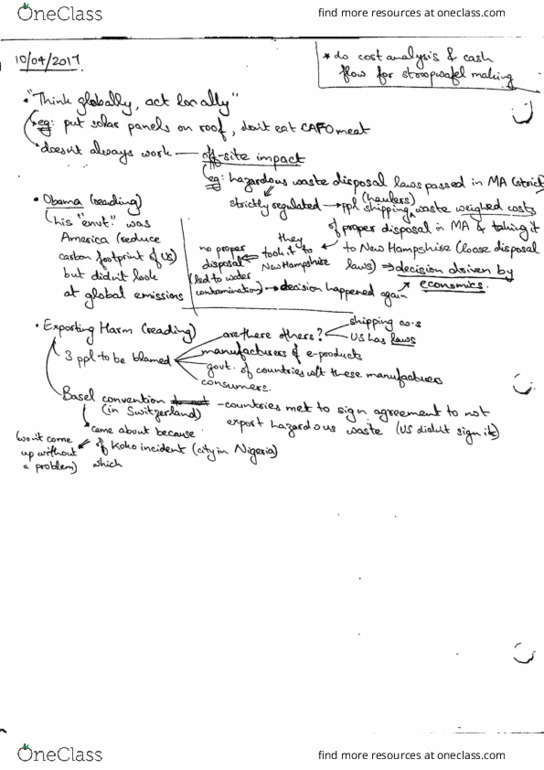 OneClass
find more resources at oneclass.com
10/04/2017
* do cost analysis & cash
flow for stroopwafel making
• "Think globally, act locally"
eg: put solar panels on roof, don't eat CAFO meat
* doesn't always work — off-site impact
eg: hazardous waste disposal laws passed in MA (strict)
strictly regulated → ppl (haulers) shipping waste weighed costs
of proper disposal in MA & taking it
to New Hampshire (loose disposal
laws) ⇒ decision driven by
economics.
they
took it to
New Hampshire
no proper
disposal
(led to water
contamination) → decision happened again
• Obama (reading)
(his "envt." was
America (reduce
carbon footprint of US)
but didn't look
at global emissions
• Exporting Harm (reading)
3 ppl to be blamed
are there others?
shipping co.s
US has laws
manufacturers of e-products
govt. of countries w/t these manufacturers
consumers.
Basel convention - countries met to sign agreement to not
(in Switzerland)
export hazardous waste (US didn't sign it)
* came about because
of Koko incident (city in Nigeria)
(won't come
up without
a problem)
which
OneClass
find more resources at oneclass.com